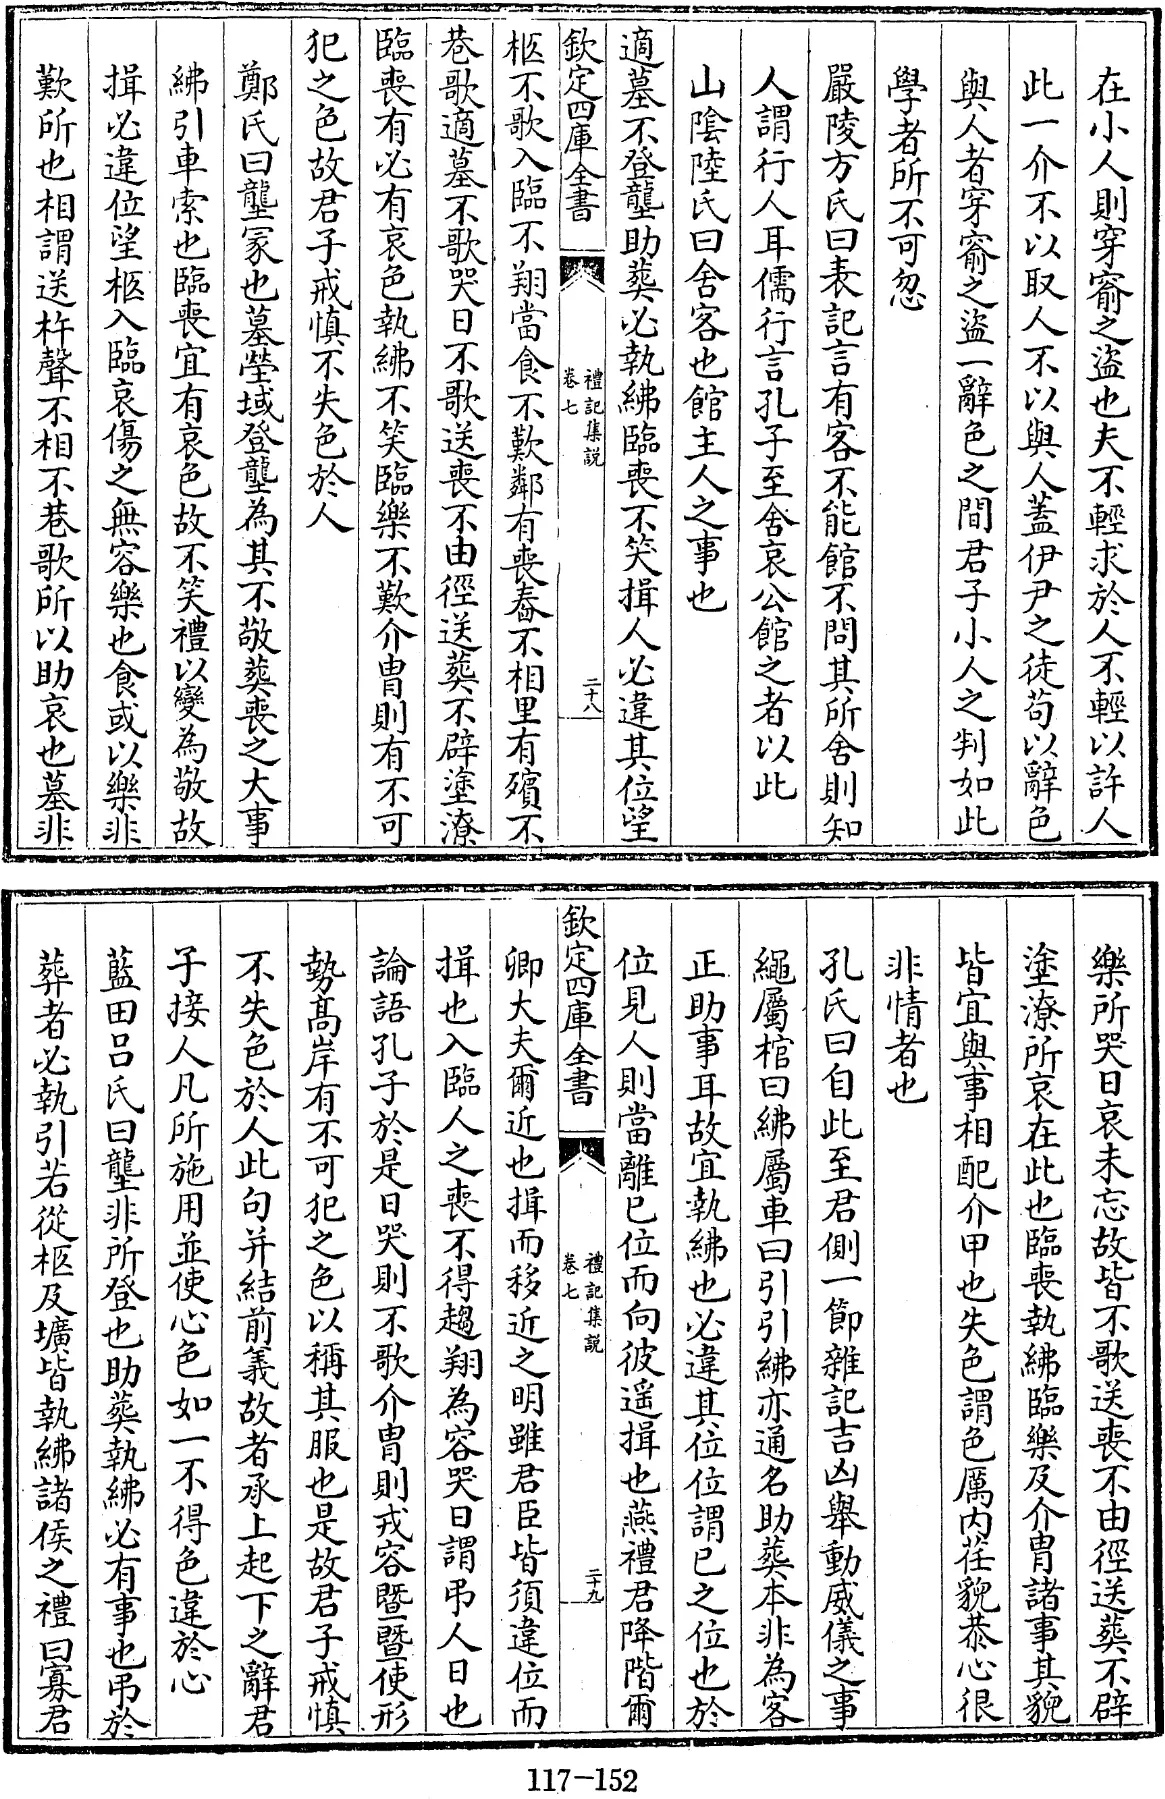 在小人則穿窬之盜也夫不輕求於人不輕以許人
此一介不以取人不以與人蓋伊尹之徒苟以辭色
與人者穿窬之盜一辭色之間君子小人之判如此
學者所不可忽
嚴陵方氏曰表記言有客不能館不問其所舍則知
人謂行人耳儒行言孔子至舍哀公館之者以此
山隂陸氏曰舍客也館主人之事也
適墓不登壟助葬必執紼臨喪不笑揖人必違其位望
欽定四庫全書
禮記集說
卷七
二十八
柩不歌入臨不翔當食不歎鄰有喪舂不相里有殯不
巷歌適墓不歌哭日不歌送喪不由徑送葬不辟塗潦
臨喪有必有哀色執紼不笑臨樂不歎介胄則有不可
犯之色故君子戒慎不失色於人
鄭氏曰壟冢也墓塋域登壟為其不敬葬喪之大事
紼引車索也臨喪宜有哀色故不笑禮以變為敬故
揖必違位望柩入臨哀傷之無容樂也食或以樂非
歎所也相謂送杵聲不相不巷歌所以助哀也墓非
樂所哭日哀未忘故皆不歌送喪不由徑送葬不辟
塗潦所哀在此也臨喪執紼臨樂及介胄諸事其貌
皆宜與事相配介甲也失色謂色厲内荏貌恭心很
非情者也
孔氏曰自此至君側一節雜記吉凶舉動威儀之事
繩屬棺曰紼屬車曰引引紼亦通名助葬本非為客
正助事耳故宜執紼也必違其位位謂已之位也於
位見人則當離已位而向彼遥揖也燕禮君降階爾
欽定四庫全書
禮記集說
卷七
二十九
卿大夫爾近也揖而移近之明雖君臣皆須違位而
揖也入臨人之喪不得趨翔為容哭日謂弔人日也
論語孔子於是日哭則不歌介胄則戎容暨暨使形
勢髙岸有不可犯之色以稱其服也是故君子戒慎
不失色於人此句并結前義故者承上起下之辭君
子接人凡所施用並使心色如一不得色違於心
藍田呂氏曰壟非所登也助葬執紼必有事也弔於
葬者必執引若從柩及壙皆執紼諸侯之禮曰寡君
117-152